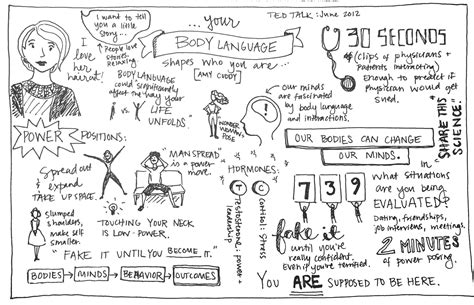 I want to tell
you a little
story...
I
love
her
haircut!
→ People love
stories.
Relating.
BODY LANGUAGE
could significantly
affect the way your
LIFE
UNFOLDS"
vs.
...your
BODY LANGUAGE
shapes who you are...
[AMY CUDDY]
WONDER
WOMAN
POSE
TED TALK: June 2012
our minds
are fascinated
by body language
and interactions.
30 SECONDS
(clips of physicians +
patients interacting)
Enough to predict if
physician would get
sued.
SHARE THIS
SCIENCE!
OUR BODIES CAN CHANGE
OUR MINDS.
POWER POSITIONS:
Spread out
expand
TAKE UP SPACE.
"MANSPREAD"
is a power
move.
slumped
shoulders,
make self
smaller.
TOUCHING YOUR NECK
IS LOW-POWER.
"FAKE IT UNTIL YOU BECOME IT."
BODIES → MINDS → BEHAVIOR → OUTCOMES
HORMONES:
T
C
Testosterone: power +
leadership
Cortisol: stress
7 3 9
fake it
until you're
really confident.
Even if you're terrified.
In
what situations
are you being
EVALUATED?
Dating, friendships,
job interviews, meetings.
2 MINUTES
of power posing.
You ARE SUPPOSED TO BE HERE.